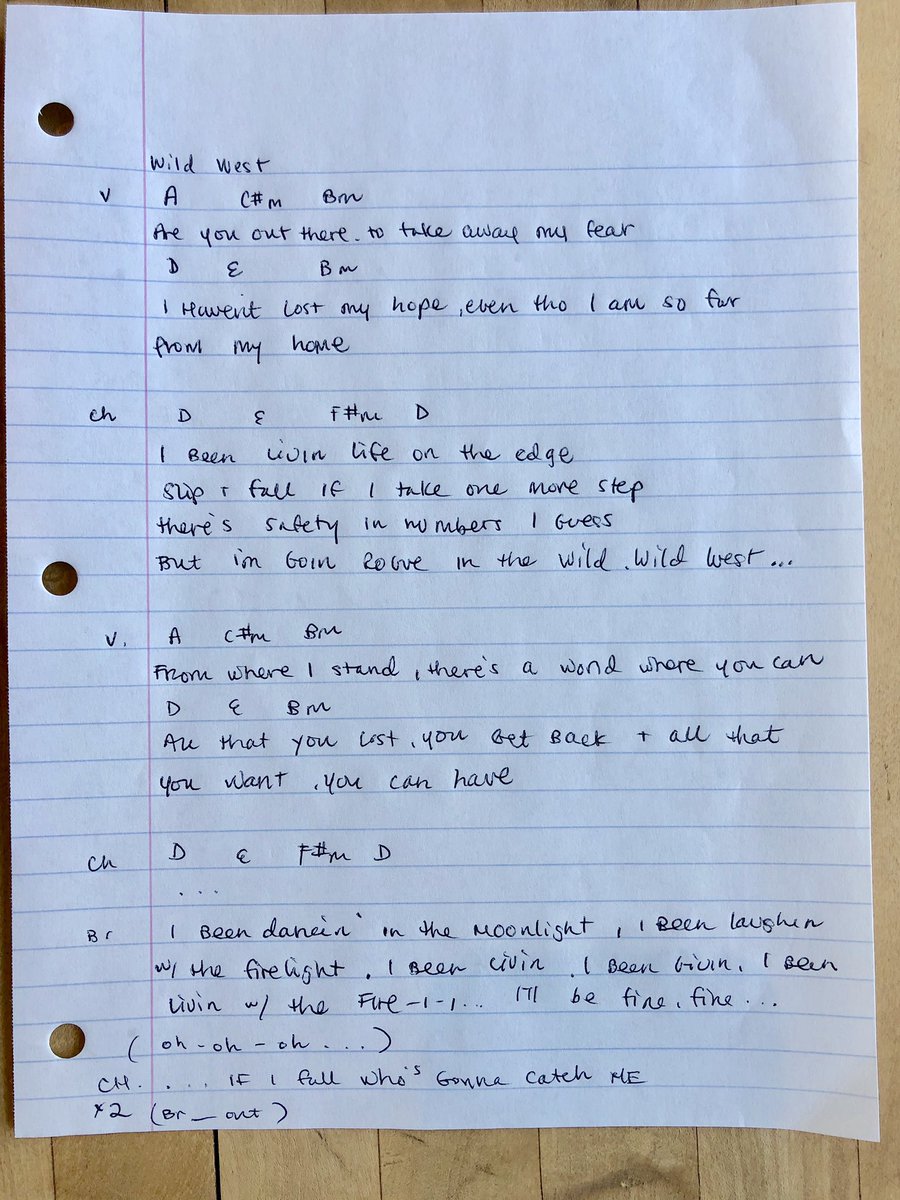 Wild West
V A C#m Bm
Are you out there. to take away my fear
D E Bm
I Haven't Lost my hope, even tho I am so far
from my home
Ch D E F#m D
I Been Livin Life on the edge
Slip + fall If I take one more step
there's safety in numbers I Guess
But i'm Goin Rogue in the Wild. Wild West...
V. A C#m Bm
From where I stand, there's a world where you can
D E Bm
All that you Lost, you Get Back + all that
you want, you can have
Ch D E F#m D
...
Br I Been dancin' in the Moonlight, I Been laughen
w/ the firelight. I Been Livin. I Been Givin. I Been
Livin w/ the Fire-I-I... I'll be fine. fine...
(oh-oh-oh...)
CH. .... IF I fall who's Gonna Catch ME
x2 (Br _ out)